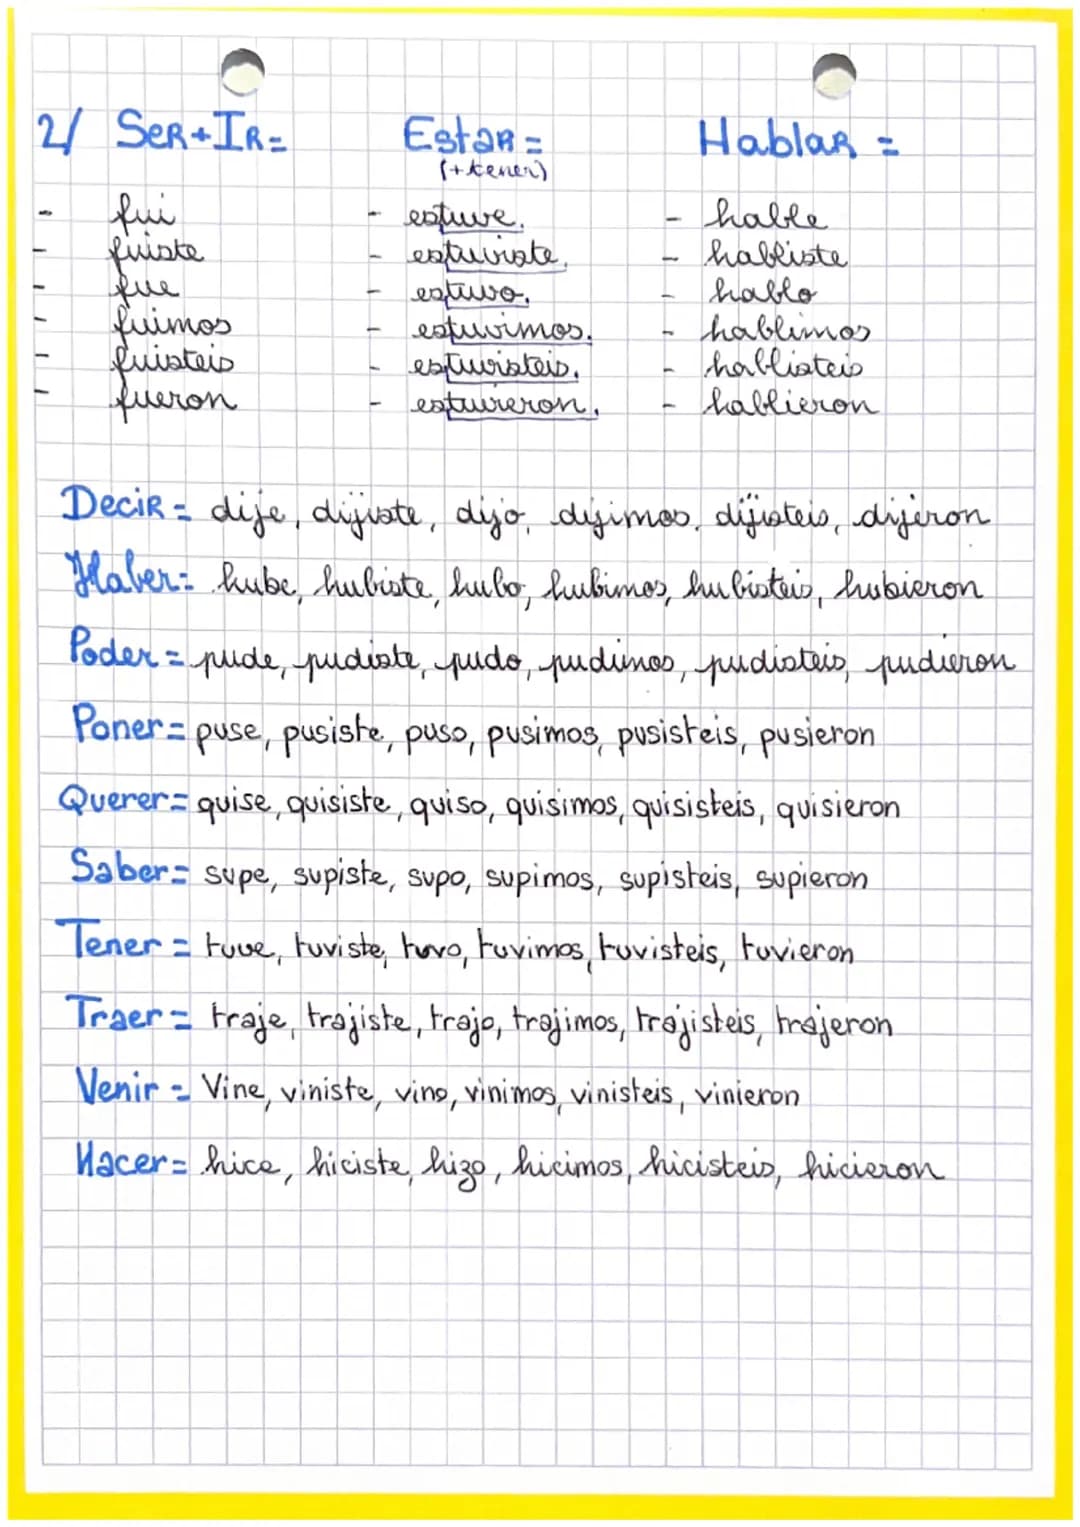 2/ Ser+Ir= Estar= Hablar =
(+tener)
- fui - estuve. - hable
- fuiste - estuviste. - habliste
- fue - estuvo. - hablo
- fuimos - estuvimos. - hablimos
- fuisteis - estuvisteis. - hablisteis
- fueron - estuvieron. - hablieron
Decir = dije, dijiste, dijo, dijimos, dijisteis, dijeron
Haber= hube, hubiste, hubo, hubimos, hubisteis, hubieron
Poder = pude, pudiste, pudo, pudimos, pudisteis, pudieron
Poner= puse, pusiste, puso, pusimos, pusisteis, pusieron
Querer= quise, quisiste, quiso, quisimos, quisisteis, quisieron
Saber= supe, supiste, supo, supimos, supisteis, supieron
Tener = tuve, tuviste, tuvo, tuvimos, tuvisteis, tuvieron
Traer = traje, trajiste, trajo, trajimos, trajisteis, trajeron
Venir = Vine, viniste, vino, vinimos, vinisteis, vinieron
Hacer= hice, hiciste, hizo, hicimos, hicisteis, hicieron